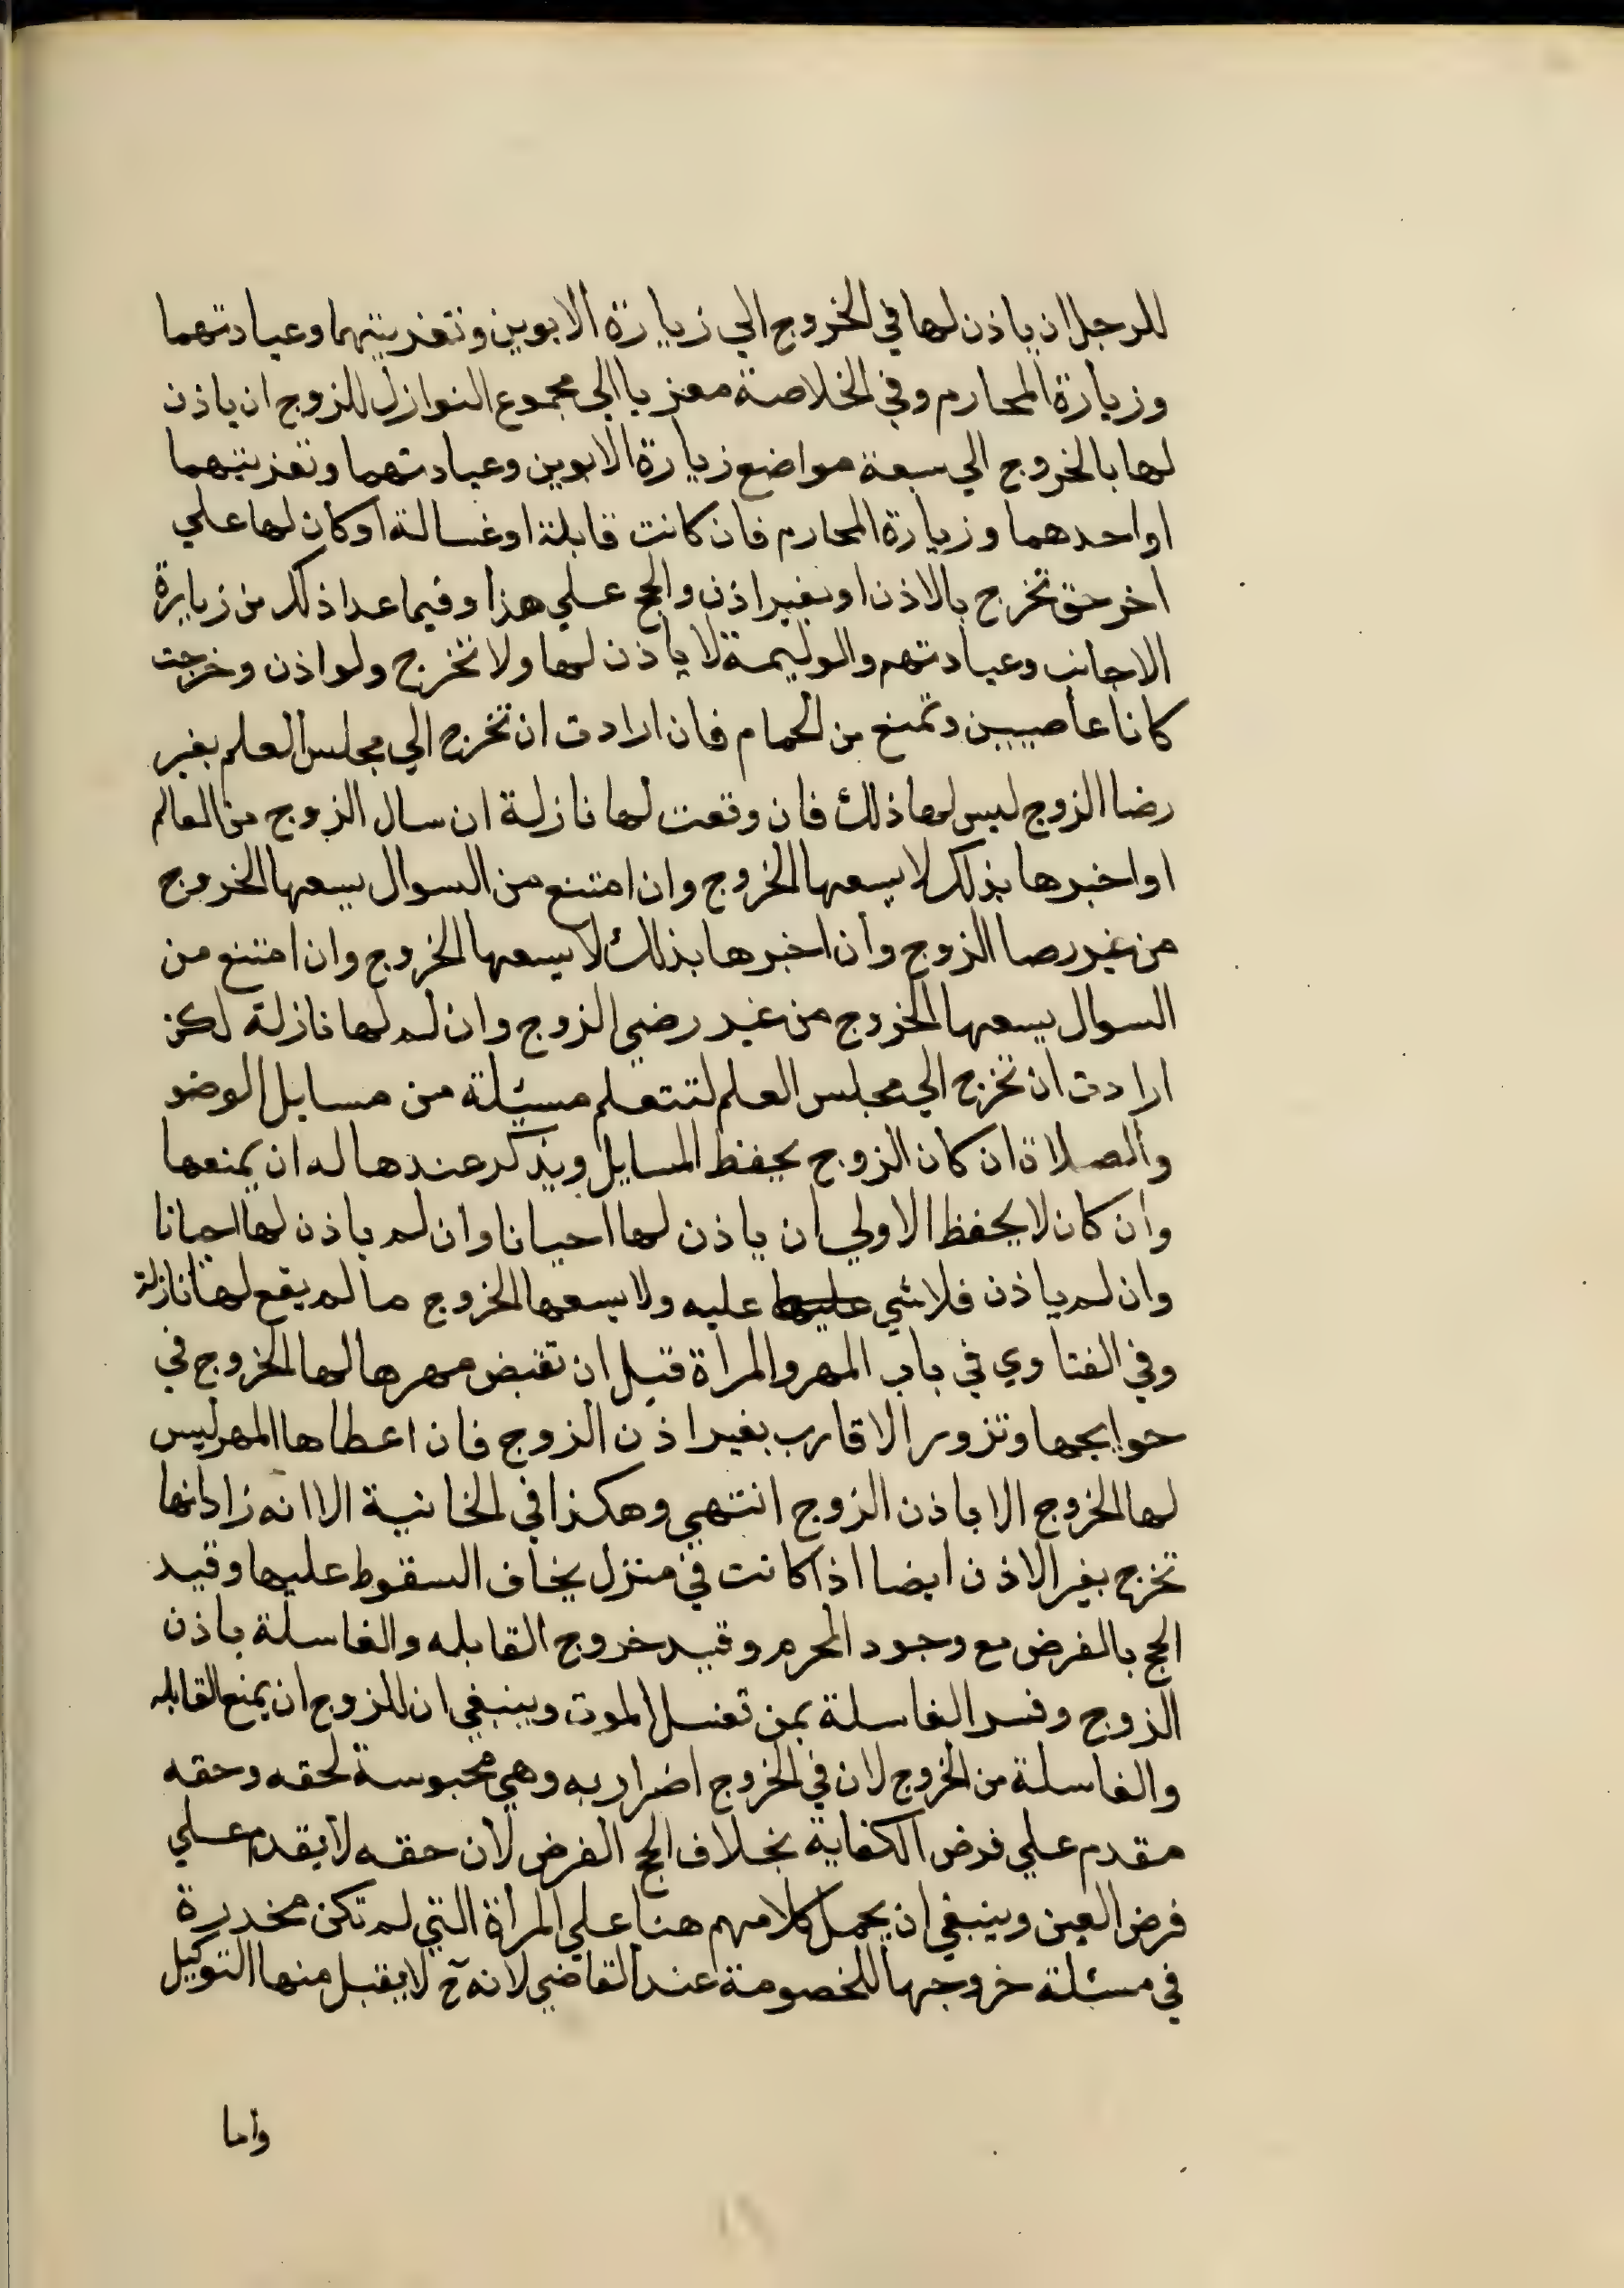 للرجل ان ياذن لها في الخروج الي زيارة الابوين وتعزيتهما وعيادتهما
وزيارة المحارم وفي الخلاصة معزيا الي مجموع النوازل للزوج ان ياذن
لها بالخروج الي سبعة مواضع زيارة الابوين وعيادتهما وتعزيتهما
او احدهما وزيارة المحارم فان كانت قابلة او غسالة او كان لها علي
اخر حق تخرج بالاذن او بغير اذن والحج علي هذا وفيما عدا ذلك من زيارة
الاجانب وعيادتهم والوليمة لا ياذن لها ولا تخرج ولو اذن وخرجت
كانا عاصيين وتمنع من الحمام فان ارادت ان تخرج الي مجلس العلم بغير
رضا الزوج ليس لها ذلك فان وقعت لها نازلة ان سال الزوج من العالم
او اخبرها بذلك لا يسعها الخروج وان امتنع من السوال يسعها الخروج
من غير رضا الزوج وان اخبرها بذلك لا يسعها الخروج وان امتنع من
السوال يسعها الخروج من غير رضي الزوج وان لم لها نازلة لكن
ارادت ان تخرج الي مجلس العلم لتتعلم مسئلة من مسايل الوضو
والصلاة ان كان الزوج يحفظ المسايل ويذكر عندها له ان يمنعها
وان كان لا يحفظ الاولي ان ياذن لها احيانا وان لم ياذن لها احيانا
وان لم ياذن فلا شي عليها عليه ولا يسعها الخروج ما لم يقع لها نازلة
وفي الفتاوي في باب المهر والمراة قبل ان تقبض مهرها لها الخروج في
حوايجها وتزور الاقارب بغير اذن الزوج فان اعطاها المهر ليس
لها الخروج الا باذن الزوج انتهي وهكذا في الخانية الا انه زاد انها
تخرج بغير الاذن ايضا اذا كانت في منزل يخاف السقوط عليها وقيد
الحج بالفرض مع وجود المحرم وقيد خروج القابله والغاسلة باذن
الزوج وفسر الغاسلة بمن تغسل الموت وينبغي ان للزوج ان يمنع القابله
والغاسلة من الخروج لان في الخروج اضرار به وهي محبوسة لحقه وحقه
مقدم علي فرض الكفاية بخلاف الحج الفرض لان حقه لا يقدم علي
فرض العين وينبغي ان يحمل كلامهم هنا علي المراة التي لم تكن مخدرة
في مسئلة خروجها للخصومة عند القاضي لانه ح لا يقبل منها التوكيل
واما